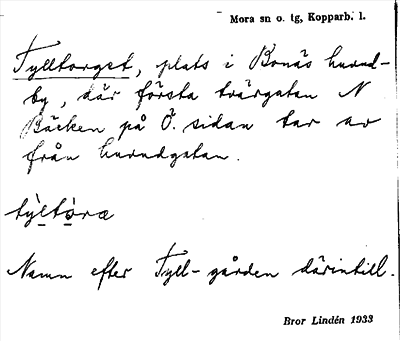 Mora sn o. tg, Kopparb. l.
Tylltorget, plats i Bonäs huvud-
by, där första tvärgatan N
Bäcken på Ö. sidan tar av
från huvudgatan.
Namn efter Tyll-gården därintill.
Bror Lindén 1933